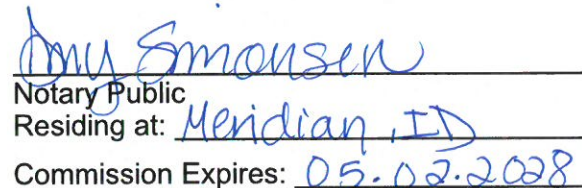 Amy Simonsen
Notary Public
Residing at: Meridian, ID
Commission Expires: 05.02.2028